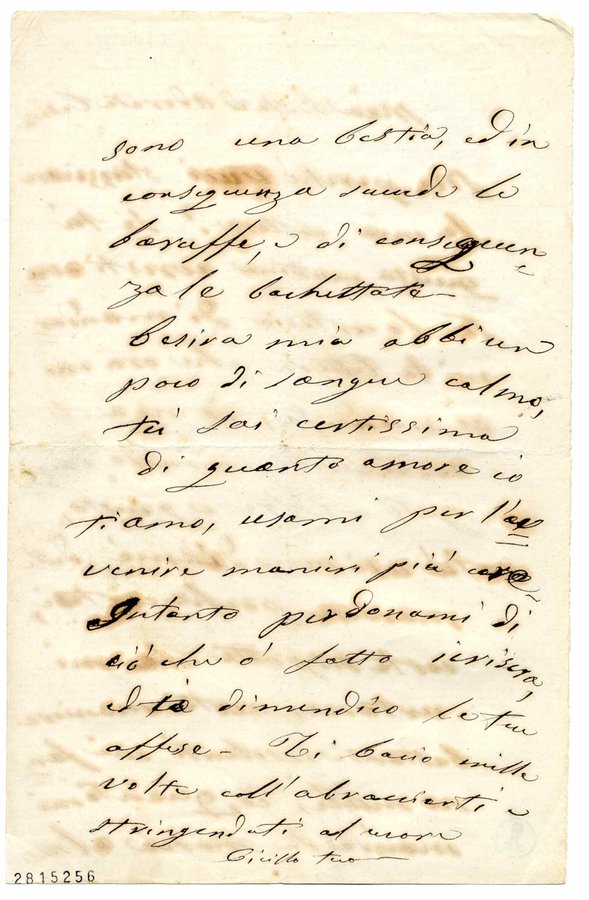 sono una bestia, ed in
conseguenza succede le
baruffe, e di conseguen
za le bachettate
Cesira mia abbi un
poco di sangue calmo,
tu sai certissima
di quanto amore io
ti amo, usami per l'av
venire manieri più care
Intanto perdonami di
ciò che ò fatto ierisera,
ed io dimendico le tue
affese - Ti bacio mille
volte coll'abracciarti e
stringendoti al cuore
Cicillo tuo
2815256